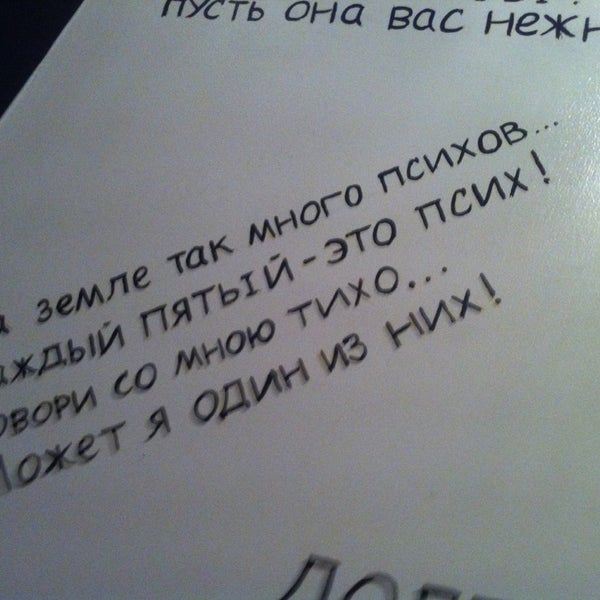 пусть она вас нежн
а земле так много психов...
аждый пятый - это псих!
овори со мною тихо...
Может я один из них!